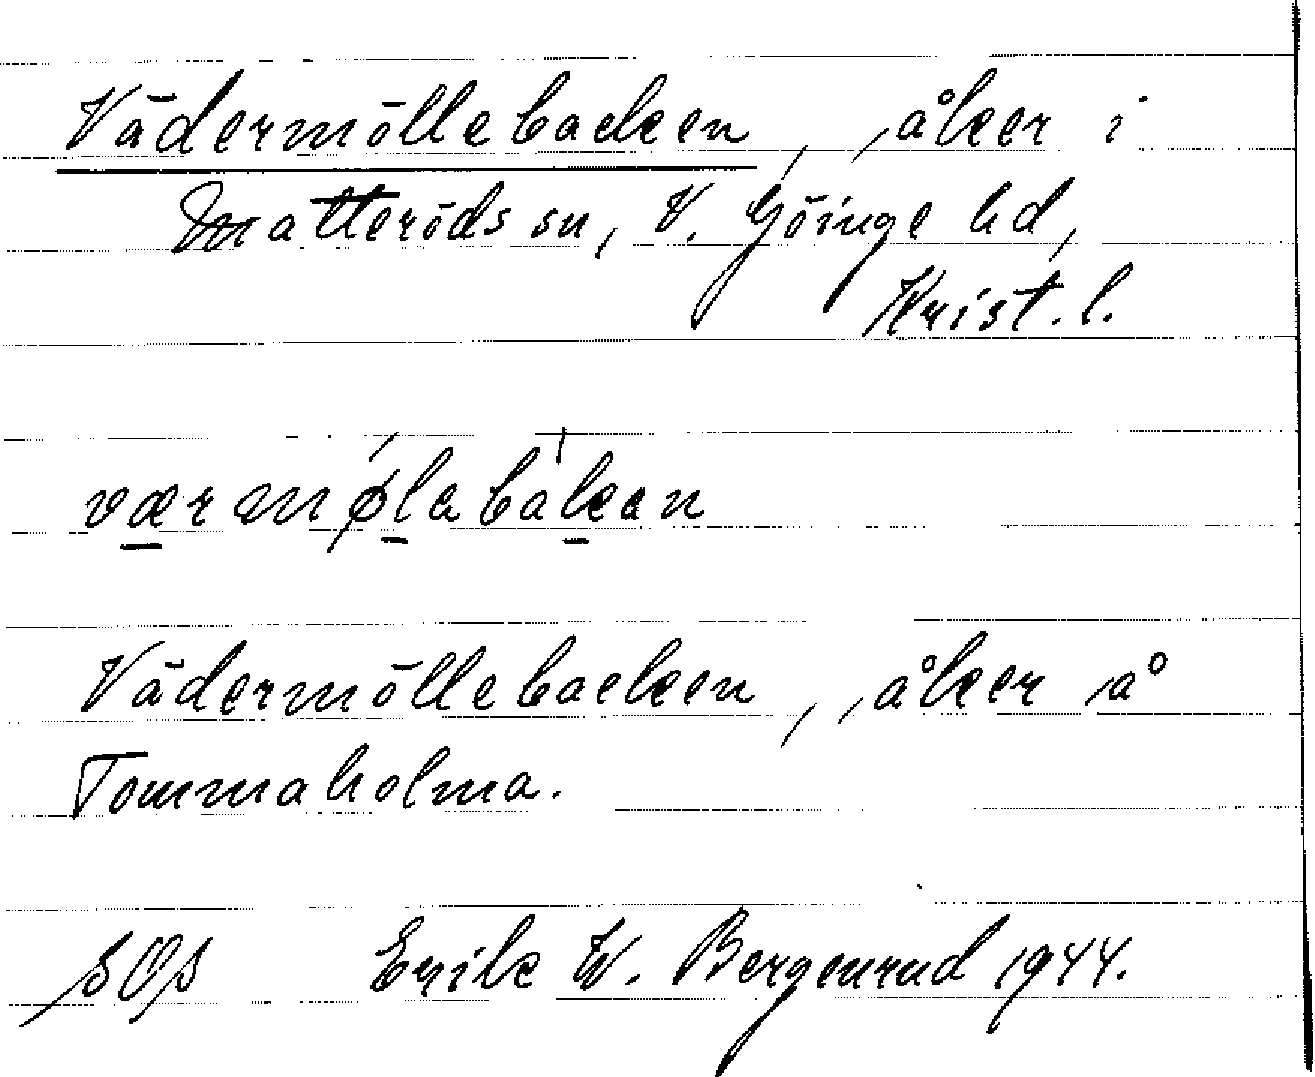 Vädermöllebacken, åker i
Matteröds sn, V. Göinge hd,
Krist. l.
værmø̀labákan
Vädermöllebacken, åker å
Tommaholma.
Erik W. Bergenrud 1944.